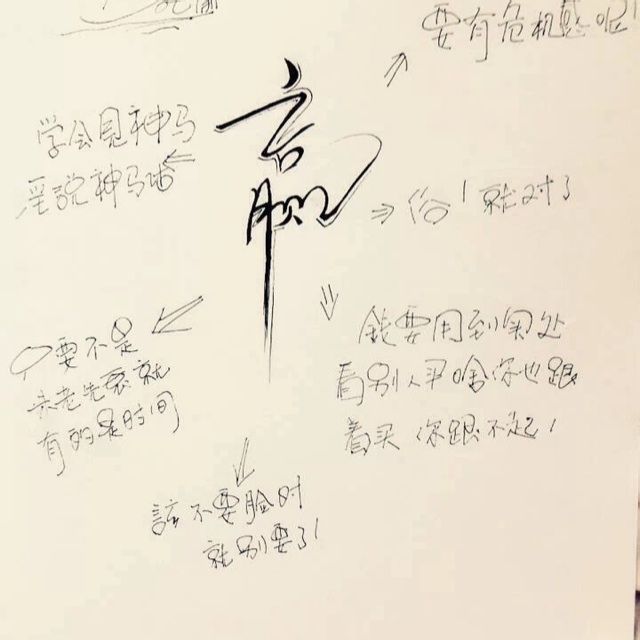 要有危机感呢!
赢
学会见神马
淫說神马话
俗!就对了
錢要用到實处
看别人买啥你也跟
着买 你跟不起!
要不是
未老先衰就
有的是时间
該不要脸时
就别要了!